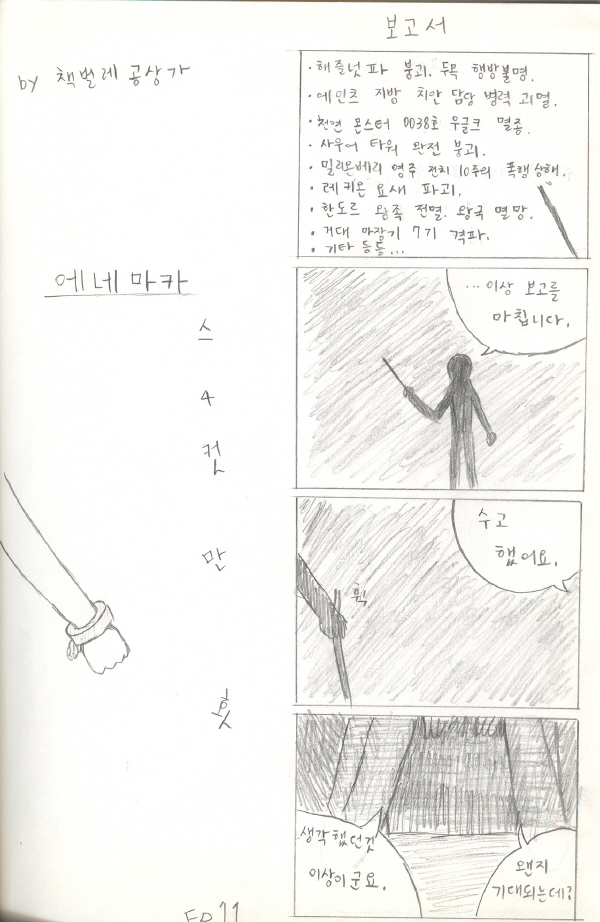 보고서
by 책벌레 공상가
· 해즐넛 파 붕괴. 두목 행방불명.
· 에인츠 지방 치안 담당 병력 괴멸.
· 천연 몬스터 0038호 우글크 멸종.
· 사우어 타워 완전 붕괴.
· 밀리온베리 영주 전치 10주의 폭행상해.
· 레키온 요새 파괴.
· 한도르 왕족 전멸. 왕국 멸망.
· 거대 마장기 7기 격파.
· 기타 등등...
에네마카
스
4
컷
만
홧
...이상 보고를
마칩니다.
수고
했어요.
휙
생각했던것
이상이군요.
왠지
기대되는데?
EP 11